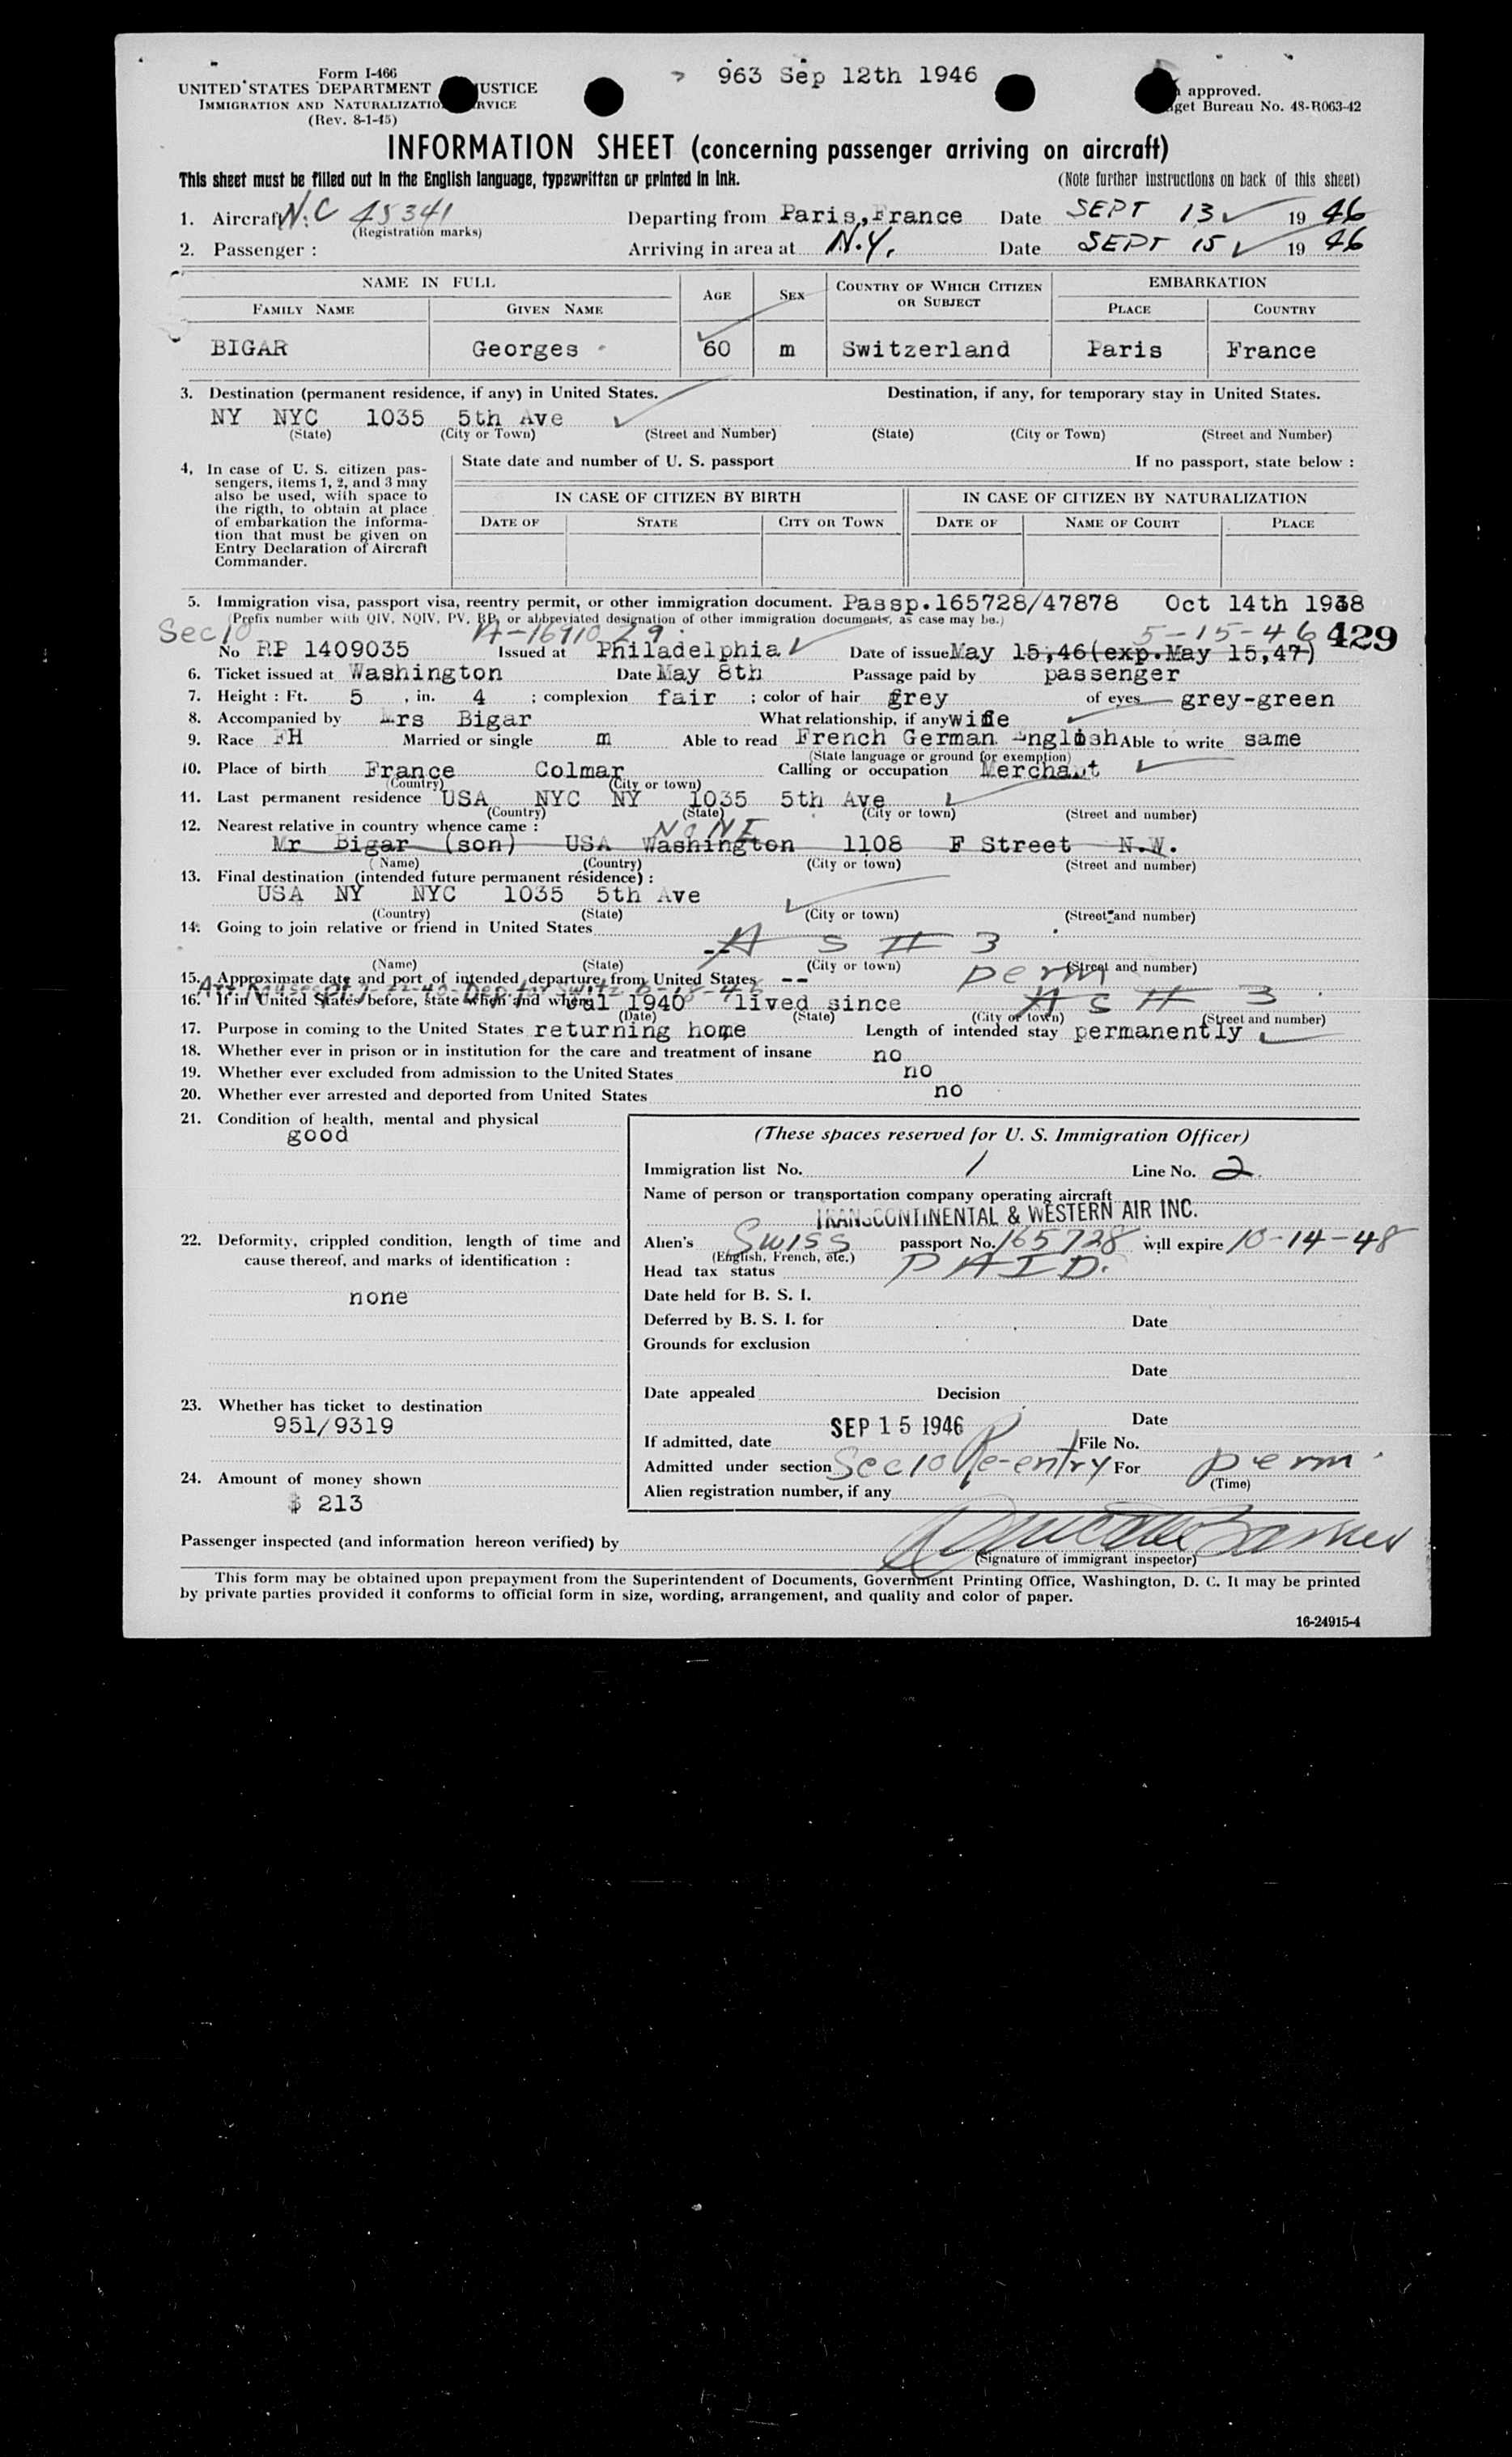 963 Sep 12th 1946
Form I-466
UNITED STATES DEPARTMENT JUSTICE
IMMIGRATION AND NATURALIZATION SERVICE
(Rev. 8-1-45)
approved.
Budget Bureau No. 48-R063-42
INFORMATION SHEET (concerning passenger arriving on aircraft)
This sheet must be filled out in the English language, typewritten or printed in ink. (Note further instructions on back of this sheet)
1. Aircraft N.C 45341 Departing from Paris, France Date SEPT 13 1946
(Registration marks)
2. Passenger : Arriving in area at N.Y. Date SEPT 15 1946
NAME IN FULL AGE SEX COUNTRY OF WHICH CITIZEN OR SUBJECT EMBARKATION
FAMILY NAME GIVEN NAME PLACE COUNTRY
BIGAR Georges 60 m Switzerland Paris France
3. Destination (permanent residence, if any) in United States. Destination, if any, for temporary stay in United States.
NY NYC 1035 5th Ave
(State) (City or Town) (Street and Number) (State) (City or Town) (Street and Number)
4, In case of U. S. citizen pas-
sengers, items 1, 2, and 3 may
also be used, with space to
the rigth, to obtain at place
of embarkation the informa-
tion that must be given on
Entry Declaration of Aircraft
Commander.
State date and number of U. S. passport If no passport, state below :
IN CASE OF CITIZEN BY BIRTH IN CASE OF CITIZEN BY NATURALIZATION
DATE OF STATE CITY OR TOWN DATE OF NAME OF COURT PLACE
5. Immigration visa, passport visa, reentry permit, or other immigration document. Passp.165728/47878 Oct 14th 1938
(Prefix number with QIV, NQIV, PV, RP, or abbreviated designation of other immigration documents, as case may be.)
Sec 10 A-1691029 5-15-46 429
No RP 1409035 Issued at Philadelphia Date of issue May 15,46(exp.May 15,47)
6. Ticket issued at Washington Date May 8th Passage paid by passenger
7. Height : Ft. 5 , in. 4 ; complexion fair ; color of hair grey of eyes grey-green
8. Accompanied by Mrs Bigar What relationship, if any wife
9. Race FH Married or single m Able to read French German English Able to write same
(State language or ground for exemption)
10. Place of birth France Colmar Calling or occupation Merchant
(Country) (City or town)
11. Last permanent residence USA NYC NY 1035 5th Ave
(Country) (State) (City or town) (Street and number)
12. Nearest relative in country whence came : NONE
Mr Bigar (son) USA Washington 1108 F Street N.W.
(Name) (Country) (City or town) (Street and number)
13. Final destination (intended future permanent résidence) :
USA NY NYC 1035 5th Ave
(Country) (State) (City or town) (Street and number)
14. Going to join relative or friend in United States
-- A S # 3
(Name) (State) (City or town) (Street and number)
15. Approximate date and port of intended departure from United States -- perm
16. If in United States before, state when and where Jul 1940 lived since A S # 3
(Date) (State) (City or town) (Street and number)
17. Purpose in coming to the United States returning home Length of intended stay permanently
18. Whether ever in prison or in institution for the care and treatment of insane no
19. Whether ever excluded from admission to the United States no
20. Whether ever arrested and deported from United States no
21. Condition of health, mental and physical
good
22. Deformity, crippled condition, length of time and
cause thereof, and marks of identification :
none
23. Whether has ticket to destination
951/9319
24. Amount of money shown
$ 213
(These spaces reserved for U. S. Immigration Officer)
Immigration list No. 1 Line No. 2
Name of person or transportation company operating aircraft
TRANSCONTINENTAL & WESTERN AIR INC.
Alien's Swiss passport No. 165728 will expire 10-14-48
(English, French, etc.)
Head tax status PAID.
Date held for B. S. I.
Deferred by B. S. I. for Date
Grounds for exclusion
Date
Date appealed Decision
Date
If admitted, date SEP 15 1946 File No.
Admitted under section Sec 10 Re-entry For perm
(Time)
Alien registration number, if any
Passenger inspected (and information hereon verified) by
(Signature of immigrant inspector)
This form may be obtained upon prepayment from the Superintendent of Documents, Government Printing Office, Washington, D. C. It may be printed
by private parties provided it conforms to official form in size, wording, arrangement, and quality and color of paper.
16-24915-4